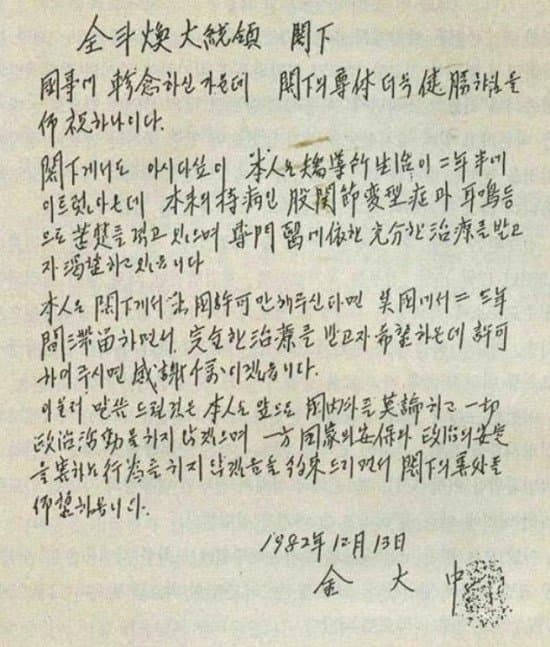 全斗煥大統領 閣下
國事에 軫念하신 가운데 閣下의 尊体 더욱 健勝하심을
仰祝하나이다.
閣下께서도 아시다싶이 本人은 矯導所 生活이 二年半에
이르렀아온데 本来의 持病인 股關節変型症과 耳鳴等
으로 苦楚를 겪고 있으며 専門醫에 依한 充分한 治療를 받고
자 渴望하고 있읍니다
本人은 閣下께서 出国許可만 해주신다면 美国에서 二, 三年
間 滞留하면서, 完全한 治療를 받고자 希望하온데 許可
하여주시면 感謝千萬이겠읍니다.
아울러 말씀드릴것은 本人은 앞으로 国内外를 莫論하고 一切
政治活動을 하지 않겠으며 一方 国家의 安保와 政治의 安定
을 害하는 行為를 하지 않겠음을 約束드리면서 閣下의 善処를
仰望하옵니다.
1982年 12月 13日
金 大 中